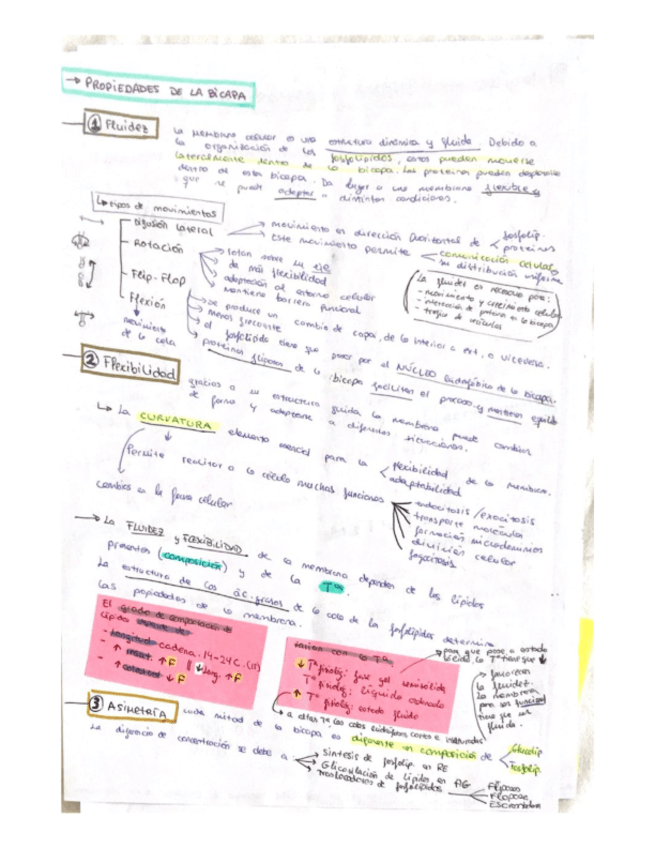 → PROPIEDADES DE LA BICAPA
① Fluidez
La membrana celular es una estructura dinámica y fluida. Debido a
la organización de los fosfolípidos, estos pueden moverse
lateralmente dentro de la bicapa. Las proteínas pueden
dentro de esta bicapa. Da lugar a una membrana flexible y
que se puede adaptar a distintas condiciones.
↳ tipos de movimientos
Difusión lateral
movimiento en dirección horizontal de
fosfolip.
proteínas
Este movimiento permite
comunicación celular
su distribución uniforme
Rotación
rotan sobre su eje
da más flexibilidad
adaptación al entorno celular
mantiene barrera funcional
La fluidez es necesaria para:
- movimiento y crecimiento celular
- interacción de proteína en la bicapa
- tráfico de vesículas
Flip-Flop
se produce un cambio de capa, de la interior a ext, o viceversa.
menos frecuente
el fosfolípido tiene que pasar por el NÚCLEO hidrofóbico de la bicapa.
proteínas flipasas de la bicapa facilitan el proceso y
Flexión
movimiento
de la cola
② Flexibilidad
gracias a su estructura fluida, la membrana puede cambiar
de forma y adaptarse a diferentes situaciones.
↳ La CURVATURA elemento esencial para la
flexibilidad
adaptabilidad
de la membrana.
Permite realizar a la célula muchas funciones
cambios en la forma celular
endocitosis/exocitosis
transporte molécular
formación microdominios
división celular
fagocitosis
→ La FLUIDEZ y FLEXIBILIDAD de la membrana dependen de los lípidos
presentes (composición) y de la Tª.
La estructura de los ác. grasos de la cola de los fosfolípidos determina
las propiedades de la membrana.
El grado de compactación de
lípidos
- longitud cadena. 14-24C.
- ↑ insat. ↑F || ↓long. ↑F
- ↑colesterol ↓F
↓ Tª fisiolog: fase gel semisólida
Tª fisiolog: líquido ordenado
↑ Tª fisiolog: estado fluido
para que pase a estado
líquido la Tª tiene que ↓
favorecen
la fluidez.
La membrana
para ser funcional
tiene que ser
fluida.
③ Asimetría
cada mitad de la bicapa es diferente en composición de
Glucolip
Fosfolip.
La diferencia de concentración se debe a
síntesis de fosfolip. en RE
Glicosilación de lípidos en AG
Translocadores de fosfolípidos
Flipasa
Flopasa